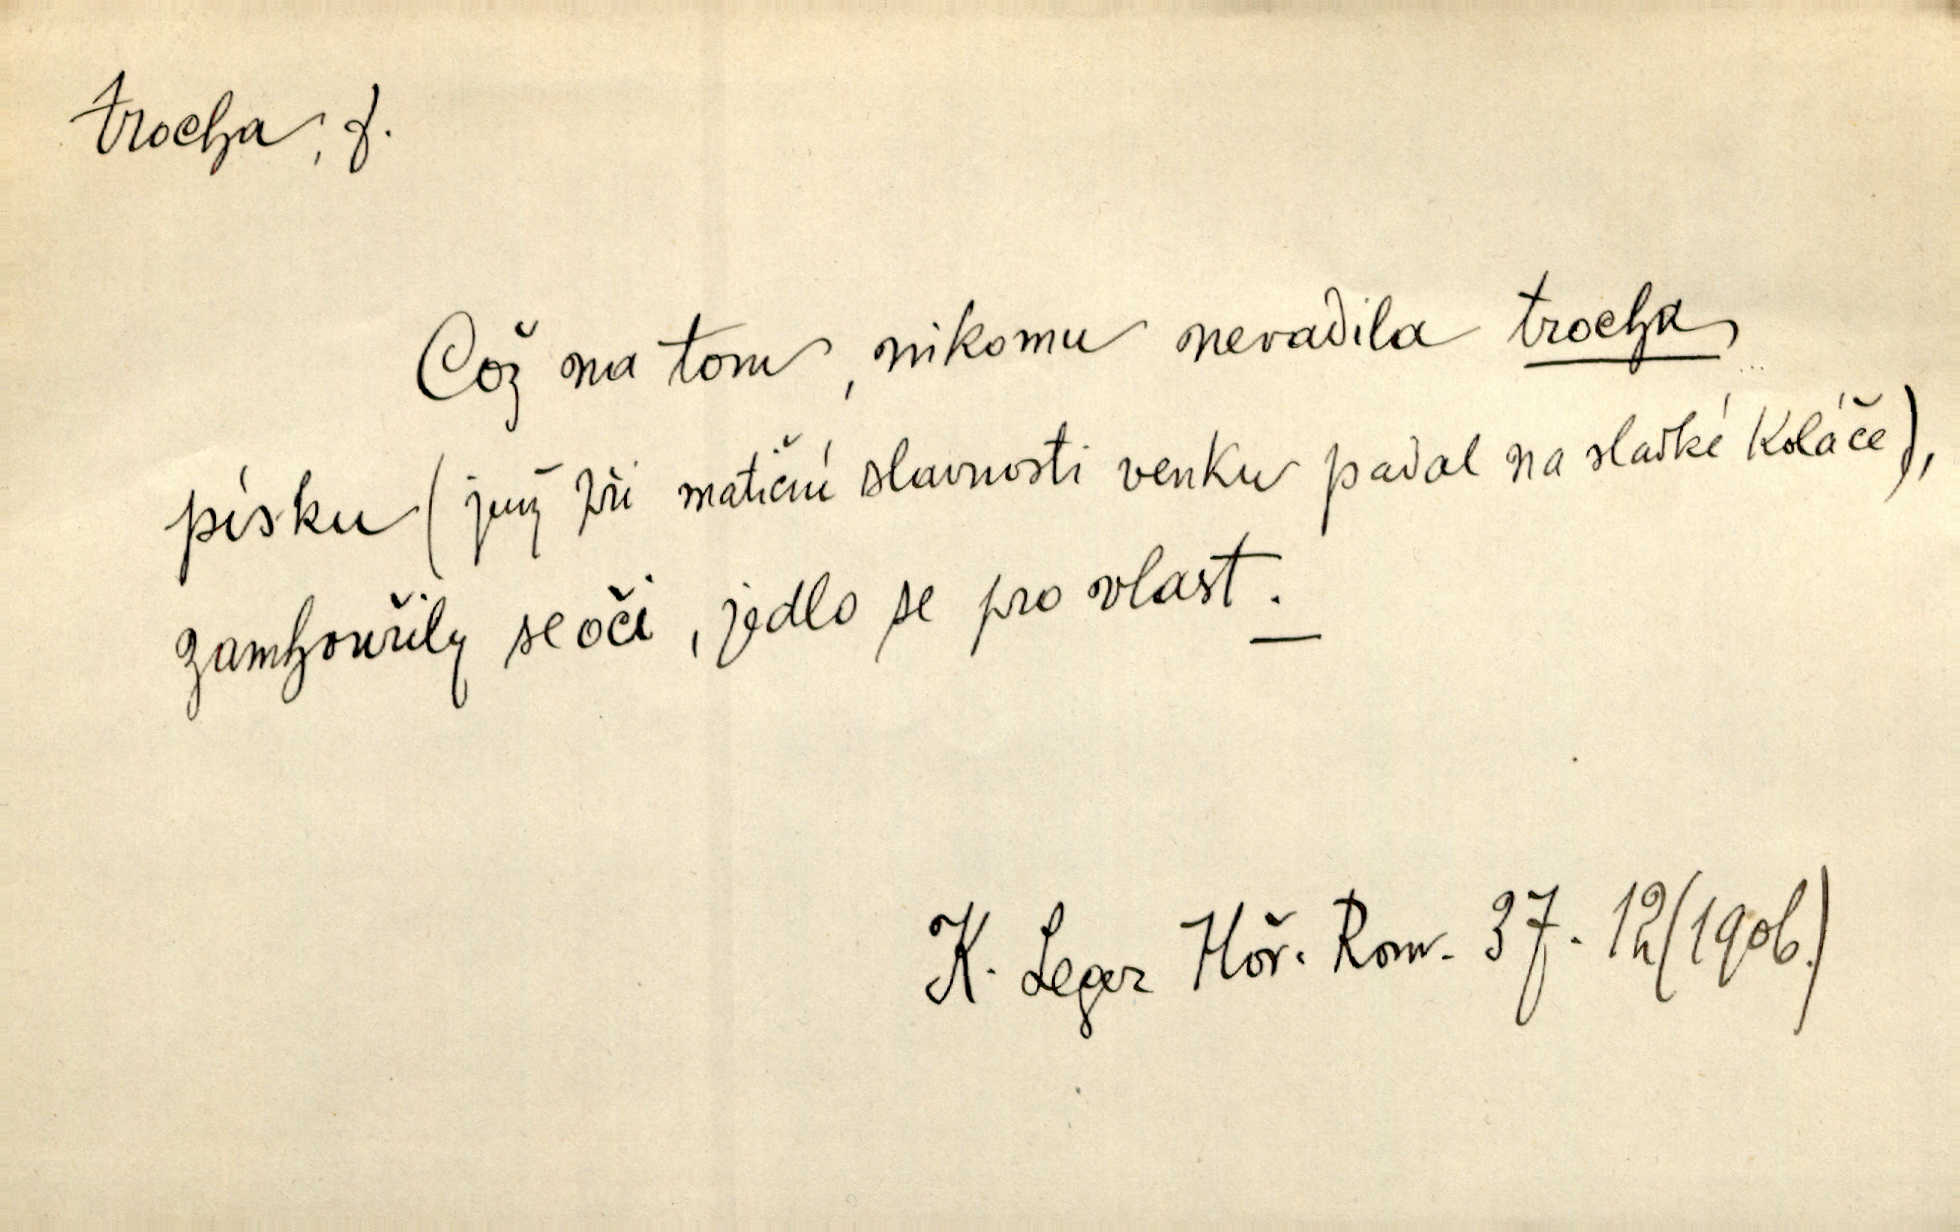 trocha, f.
Což na tom, nikomu nevadila trocha
písku (jenž při matiční slavnosti venku padal na sladké koláče),
zamhouřily se oči, jedlo se pro vlast.
K. Leger Hov. Rom. 37. 12 (1906.)